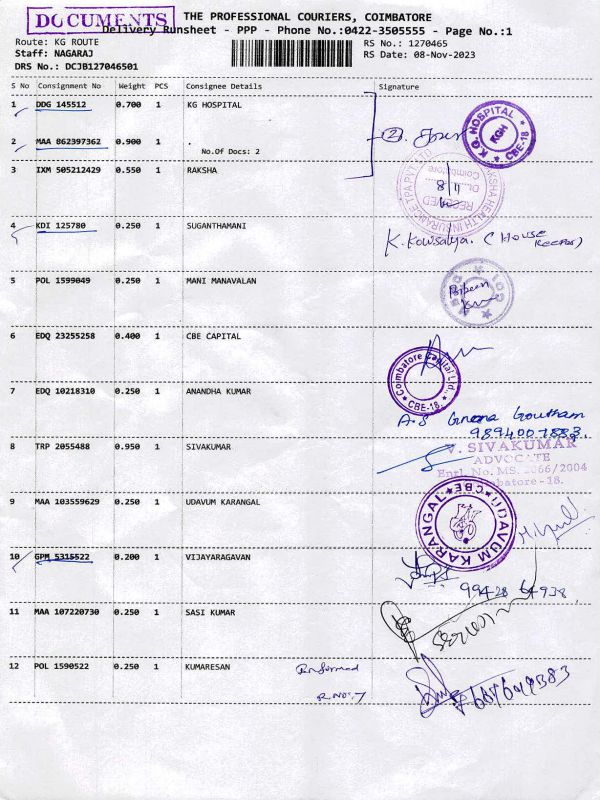 DOCUMENTS
THE PROFESSIONAL COURIERS, COIMBATORE
Delivery Runsheet - PPP - Phone No.:0422-3505555 - Page No.:1
Route: KG ROUTE RS No.: 1270465
Staff: NAGARAJ RS Date: 08-Nov-2023
DRS No.: DCJB127046501
S No Consignment No Weight PCS Consignee Details Signature
1 DDG 145512 0.700 1 KG HOSPITAL
K.G. HOSPITAL KGH CBE-18
2 MAA 862397362 0.900 1 .
No.Of Docs: 2
2
3 IXM 505212429 0.550 1 RAKSHA
RAKSHA HEALTH INSURANCE TPA PVT LTD
RECEIVED
Coimbatore
4 KDI 125780 0.250 1 SUGANTHAMANI
K. Kowsalya. (House Keeper)
5 POL 1599049 0.250 1 MANI MANAVALAN
6 EDQ 23255258 0.400 1 CBE CAPITAL
Coimbatore Capital Ltd., CBE-18.
7 EDQ 10218310 0.250 1 ANANDHA KUMAR
A.S Gnana Goutham
9894007883.
8 TRP 2055488 0.950 1 SIVAKUMAR
V. SIVAKUMAR
ADVOCATE
Enrl. No. MS. 2066/2004
Coimbatore - 18.
9 MAA 103559629 0.250 1 UDAVUM KARANGAL
UDAVUM KARANGAL CBE
10 GPM 5315522 0.200 1 VIJAYARAGAVAN
99428 64938
11 MAA 107220730 0.250 1 SASI KUMAR
12 POL 1590522 0.250 1 KUMARESAN
Informed
R.NO.7